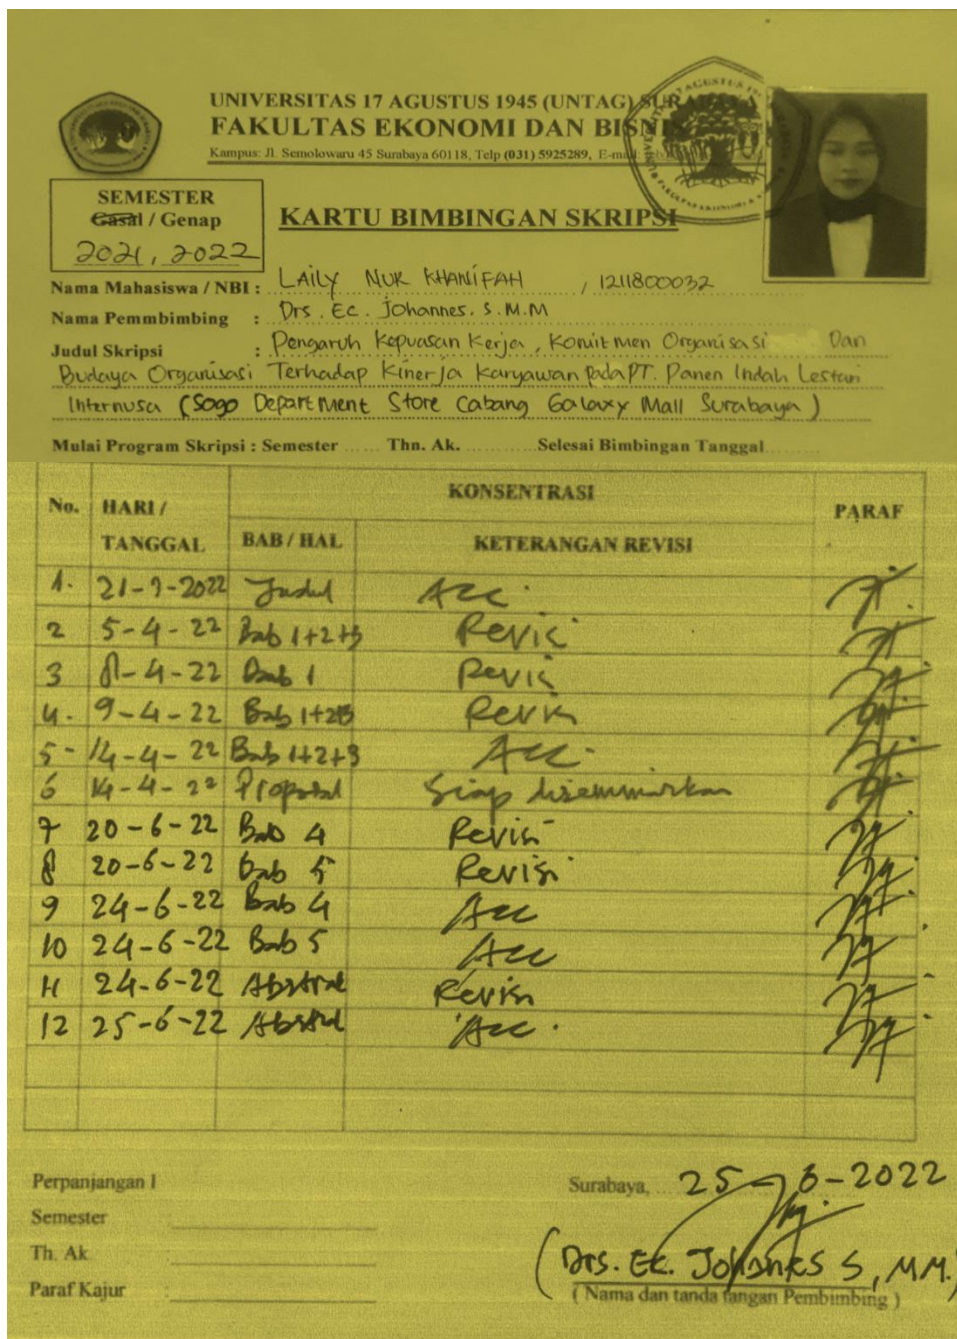 UNIVERSITAS 17 AGUSTUS 1945 (UNTAG) SURABAYA
FAKULTAS EKONOMI DAN BISNIS
Kampus: Jl. Semolowaru 45 Surabaya 60118, Telp (031) 5925289, E-mail
SEMESTER
Gasal / Genap
2021, 2022
KARTU BIMBINGAN SKRIPSI
Nama Mahasiswa / NBI : LAILY NUR KHANIFAH / 1211800032
Nama Pemmbimbing : Drs. Ec. Johannes. S. M.M
Judul Skripsi : Pengaruh Kepuasan Kerja, Komitmen Organisasi Dan
Budaya Organisasi Terhadap Kinerja Karyawan Pada PT. Panen Indah Lestari
Internusa (Sogo Department Store Cabang Galaxy Mall Surabaya)
Mulai Program Skripsi : Semester ...... Thn. Ak. ............ Selesai Bimbingan Tanggal
No. HARI / TANGGAL KONSENTRASI PARAF
BAB / HAL KETERANGAN REVISI
1. Judul Acc.
2 5-4-22 Bab 1+2+3 Revisi
3 8-4-22 Bab 1 Revisi
4. 9-4-22 Bab 1+2+3 Revisi
5- 14-4-22 Bab 1+2+3 Acc.
6 14-4-22 Proposal Siap diseminarkan
7 20-6-22 Bab 4 Revisi
8 20-6-22 Bab 5 Revisi
9 24-6-22 Bab 4 Acc
10 24-6-22 Bab 5 Acc
11 24-6-22 Abstrak Revisi
12 25-6-22 Abstrak Acc.
Perpanjangan I
Surabaya, 25-6-2022
Semester :
Th. Ak :
Paraf Kajur :
(Drs. Ec. Johannes S, M.M.)
( Nama dan tanda tangan Pembimbing )